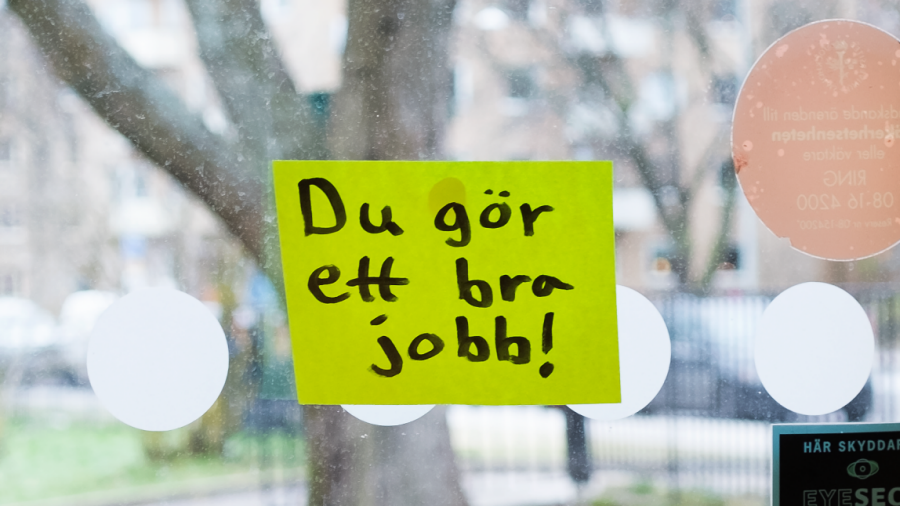 Du gör
ett bra
jobb!
dskande ärenden till
kerhetsenheten
eller väktare
RING
08-16 4200
HÄR SKYDDAR
EYESEC